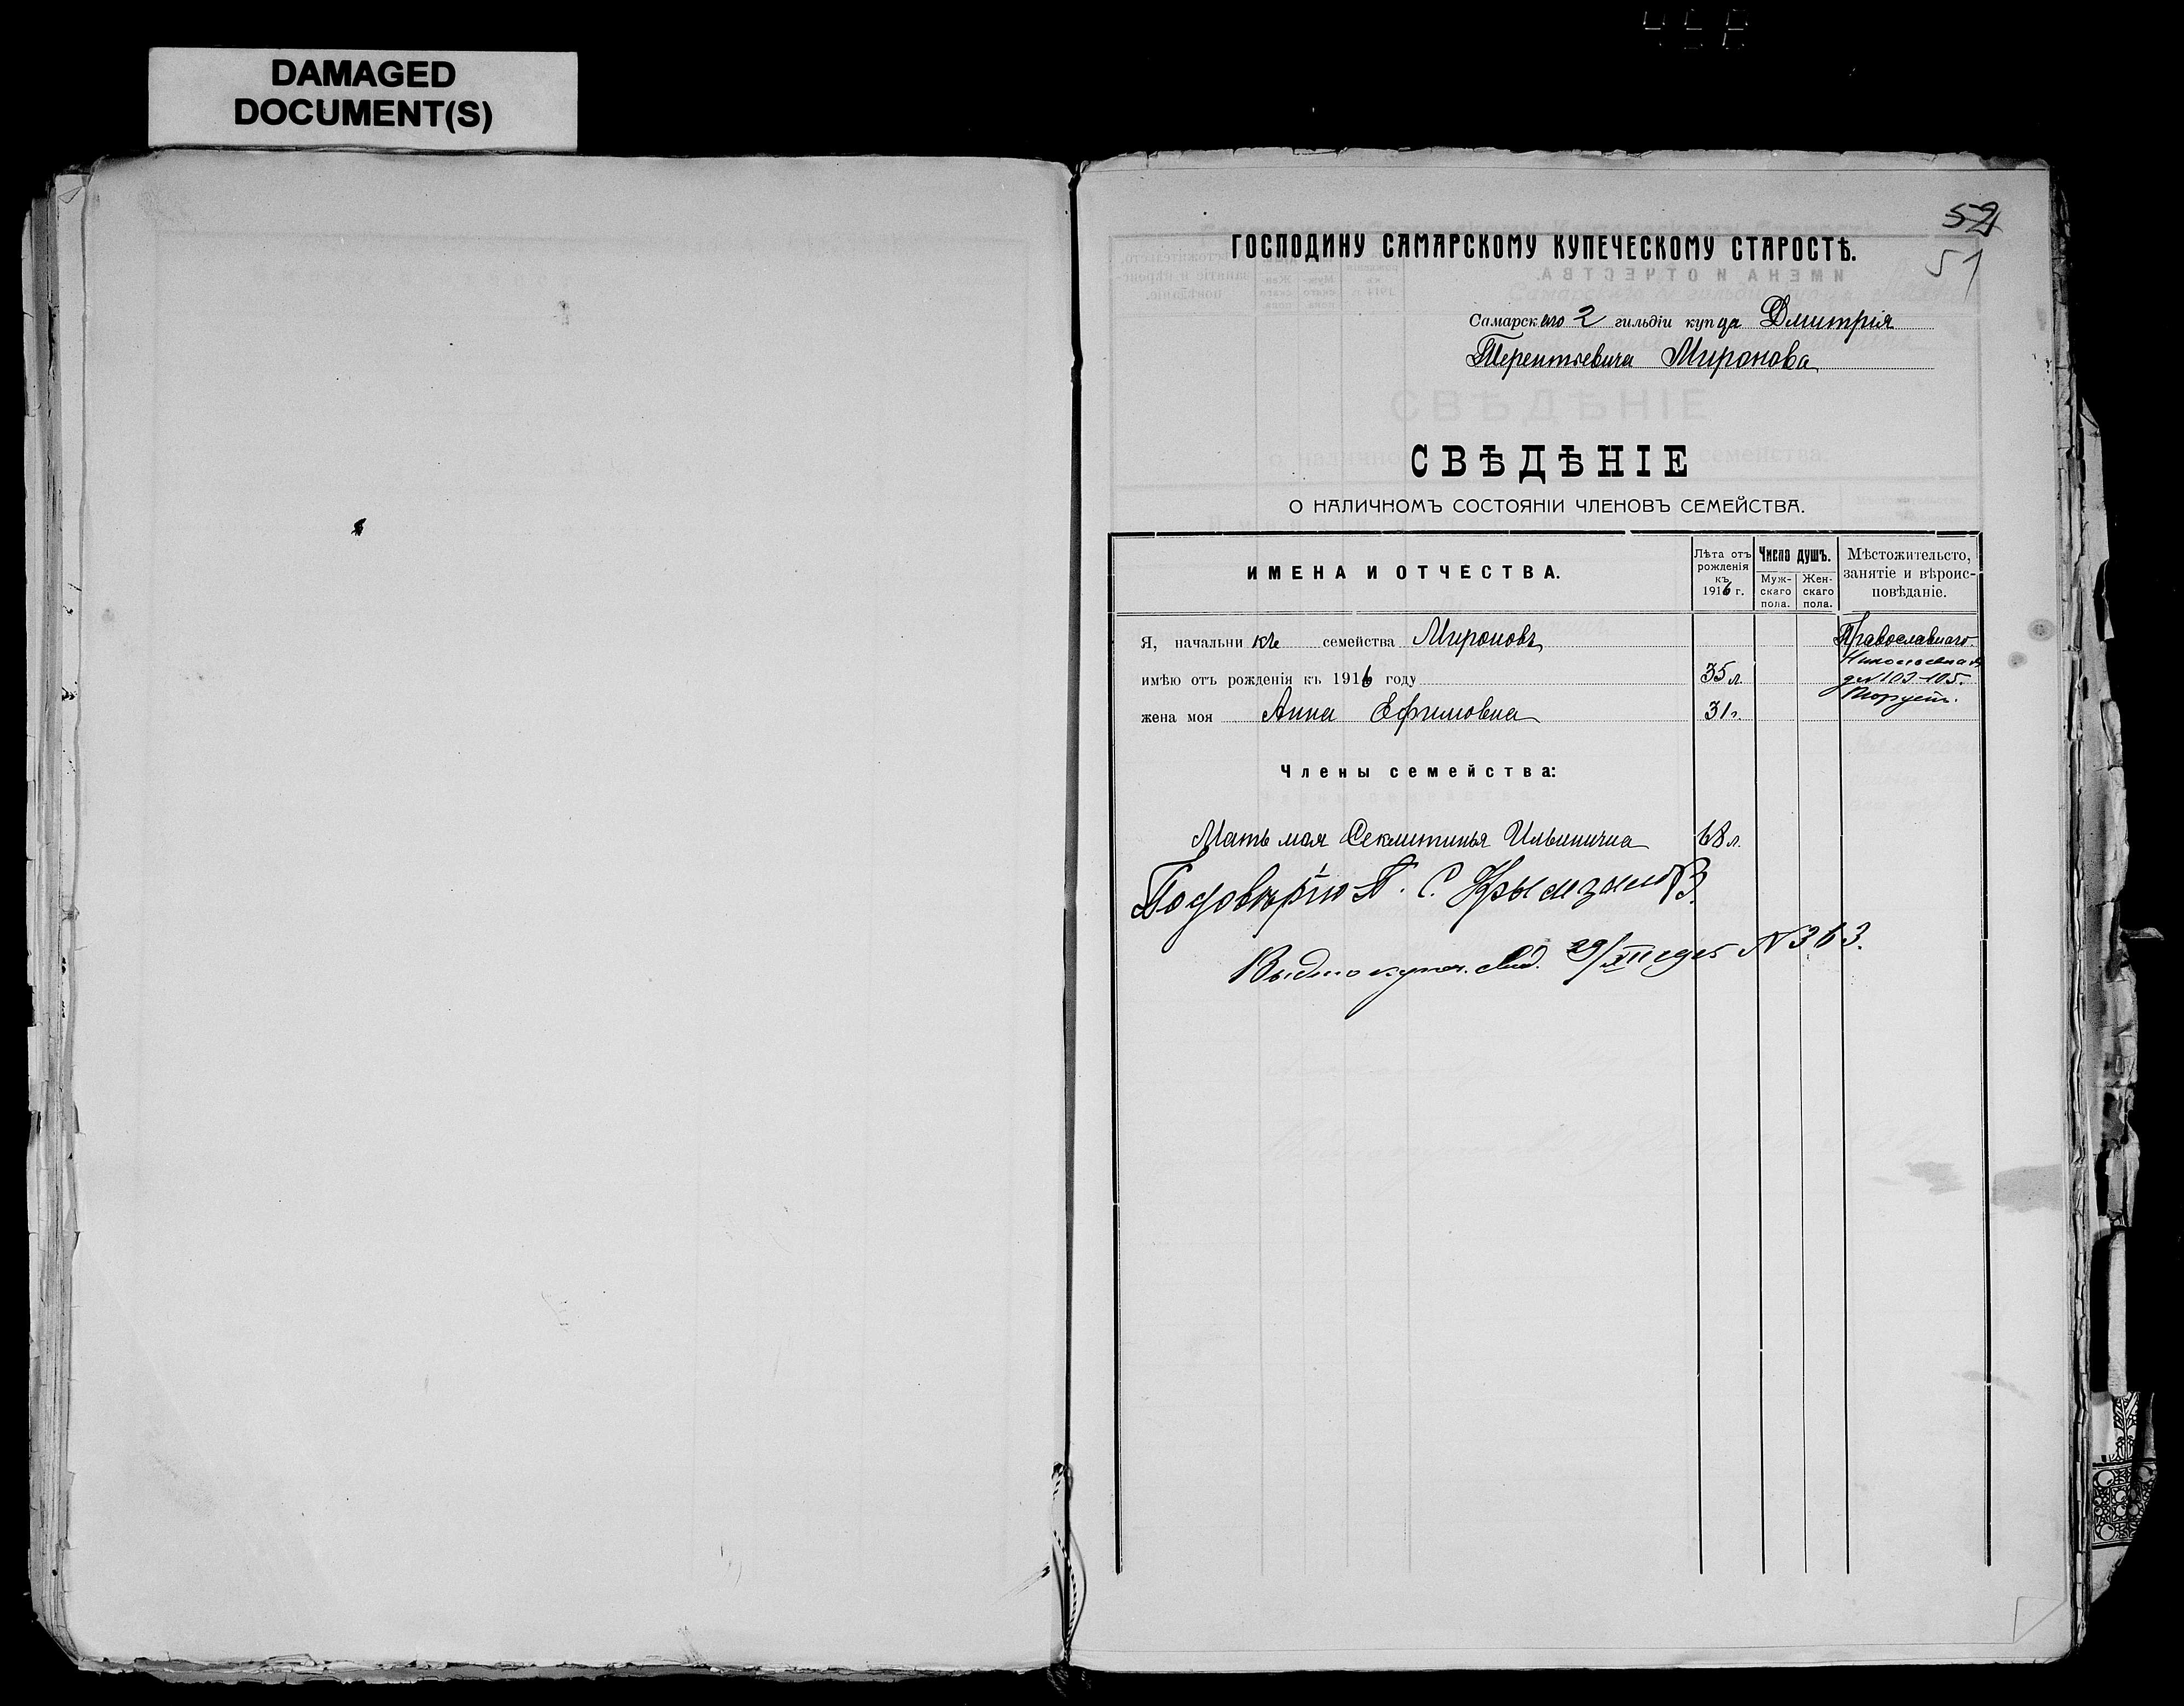 DAMAGED
DOCUMENT(S)
52
51
ГОСПОДИНУ САМАРСКОМУ КУПЕЧЕСКОМУ СТАРОСТѢ.
Самарскаго 2 гильдіи купца Дмитрія
Терентьевича Миронова
СВѢДѢНІЕ
О НАЛИЧНОМЪ СОСТОЯНІИ ЧЛЕНОВЪ СЕМЕЙСТВА.
ИМЕНА И ОТЧЕСТВА.
Лѣта отъ рожденія къ 1916 г.
Число душъ.
Мужскаго пола.
Женскаго пола.
Мѣстожительсто, занятіе и вѣроисповѣданіе.
Я, начальникъ семейства Мироновъ
Православнаго
имѣю отъ рожденія къ 1916 году 35 л.
д № 103-105.
жена моя Анна Ефимовна 31 г.
Члены семейства:
Мать моя Секлитинья Ильинична 68 л.
По довѣрію П. С.
29/XII № 363.